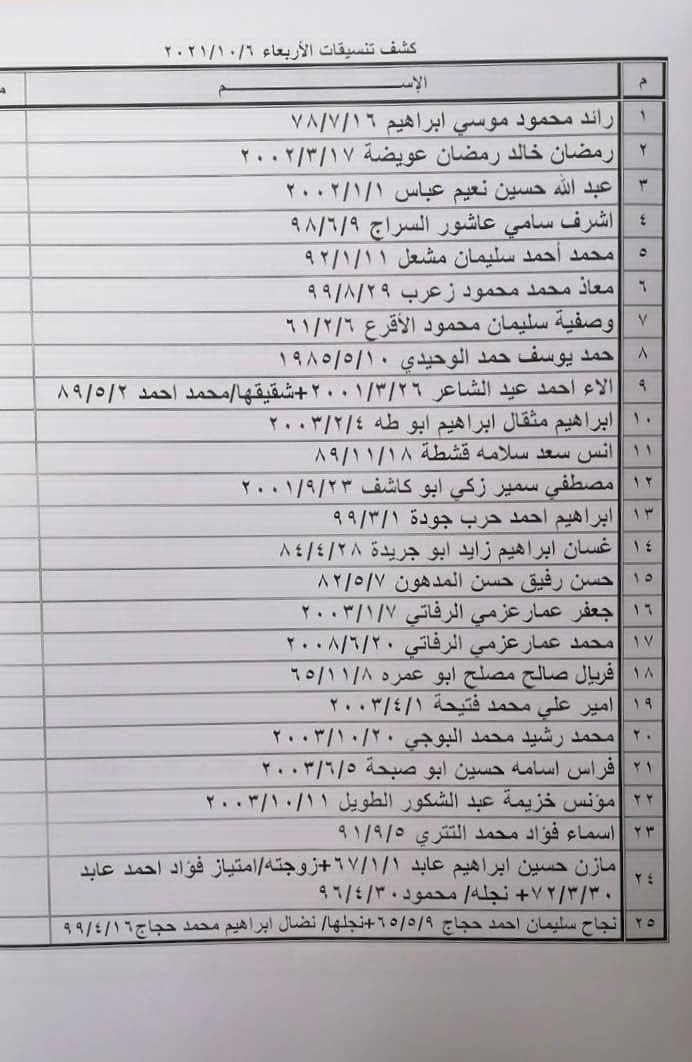 كشف تنسيقات الأربعاء ٢٠٢١/١٠/٦
م الإســـــــم م
١ رائد محمود موسي ابراهيم ٧٨/٧/١٦
٢ رمضان خالد رمضان عويضة ٢٠٠٢/٣/١٧
٣ عبد الله حسين نعيم عباس ٢٠٠٢/١/١
٤ اشرف سامي عاشور السراج ٩٨/٦/٩
٥ محمد أحمد سليمان مشعل ٩٢/١/١١
٦ معاذ محمد محمود زعرب ٩٩/٨/٢٩
٧ وصفية سليمان محمود الأقرع ٦١/٢/٦
٨ حمد يوسف حمد الوحيدي ١٩٨٥/٥/١٠
٩ الاء احمد عيد الشاعر ٢٠٠١/٣/٢٦+شقيقها/محمد احمد ٨٩/٥/٢
١٠ ابراهيم مثقال ابراهيم ابو طه ٢٠٠٣/٢/٤
١١ انس سعد سلامه قشطة ٨٩/١١/١٨
١٢ مصطفي سمير زكي ابو كاشف ٢٠٠١/٩/٢٣
١٣ ابراهيم احمد حرب جودة ٩٩/٣/١
١٤ غسان ابراهيم زايد ابو جريدة ٨٤/٤/٢٨
١٥ حسن رفيق حسن المدهون ٨٢/٥/٧
١٦ جعفر عمارعزمي الرفاتي ٢٠٠٣/١/٧
١٧ محمد عمارعزمي الرفاتي ٢٠٠٨/٦/٢٠
١٨ فريال صالح مصلح ابو عمره ٦٥/١١/٨
١٩ امير علي محمد فتيحة ٢٠٠٣/٤/١
٢٠ محمد رشيد محمد البوجي ٢٠٠٣/١٠/٢٠
٢١ فراس اسامه حسين ابو صبحة ٢٠٠٣/٦/٥
٢٢ مؤنس خزيمة عبد الشكور الطويل ٢٠٠٣/١٠/١١
٢٣ اسماء فؤاد محمد التتري ٩١/٩/٥
٢٤ مازن حسين ابراهيم عابد ٦٧/١/١+زوجته/امتياز فؤاد احمد عابد
٧٢/٣/٣٠+ نجله/ محمود٩٦/٤/٣٠
٢٥ نجاح سليمان احمد حجاج ٦٥/٥/٩+نجلها/ نضال ابراهيم محمد حجاج٩٩/٤/١٦